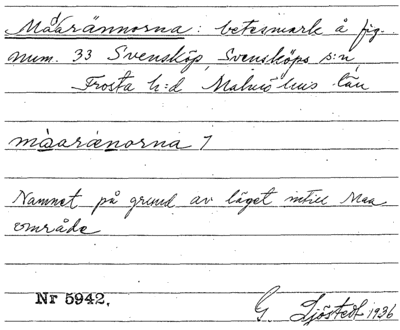 Madarännorna: betesmark å fig.
num. 33 Svensköp, Svensköps s:n,
Frosta h:d Malmöhus län
måaɹænorna 7
Namnet på grund av läget intill Maa
område
Nr 5942.
G. Sjöstedt 1936